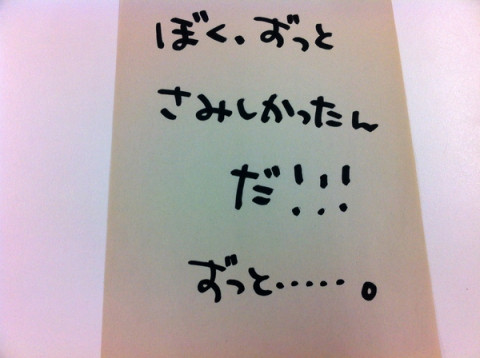 ぼく。ずっと
さみしかったん
だ!!!
ずっと‥‥‥。